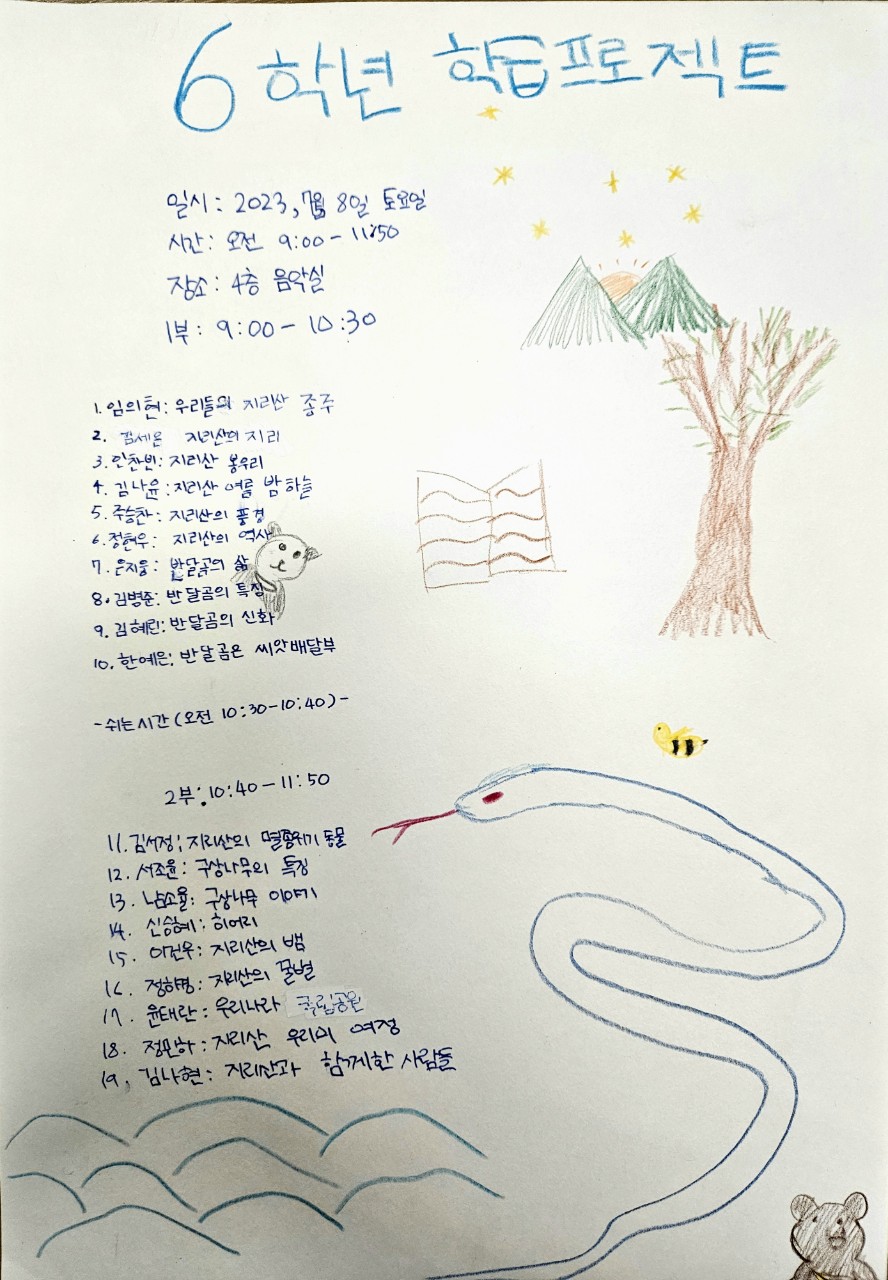 6학년 학습프로젝트
일시: 2023, 7월 8일 토요일
시간: 오전 9:00 - 11:50
장소: 4층 음악실
1부: 9:00 - 10:30
1. 임의현: 우리들의 지리산 종주
2. 김세은 지리산의 지리
3. 인찬빈: 지리산 봉우리
4. 김나윤: 지리산 여름 밤하늘
5. 주승찬: 지리산의 풍경
6. 정현우: 지리산의 역사
7. 은지웅: 반달곰의 삶
8. 김병준: 반달곰의 특징
9. 김혜린: 반달곰의 신화
10. 한예은: 반달곰은 씨앗배달부
- 쉬는시간 (오전 10:30-10:40) -
2부: 10:40 - 11:50
11. 김서정: 지리산의 멸종위기 동물
12. 서조윤: 구상나무의 특징
13. 남소율: 구상나무 이야기
14. 신승혜: 히어리
15. 이건우: 지리산의 뱀
16. 정하명: 지리산의 꿀벌
17. 윤태란: 우리나라 국립공원
18. 정민하: 지리산 우리의 여정
19. 김나현: 지리산과 함께한 사람들